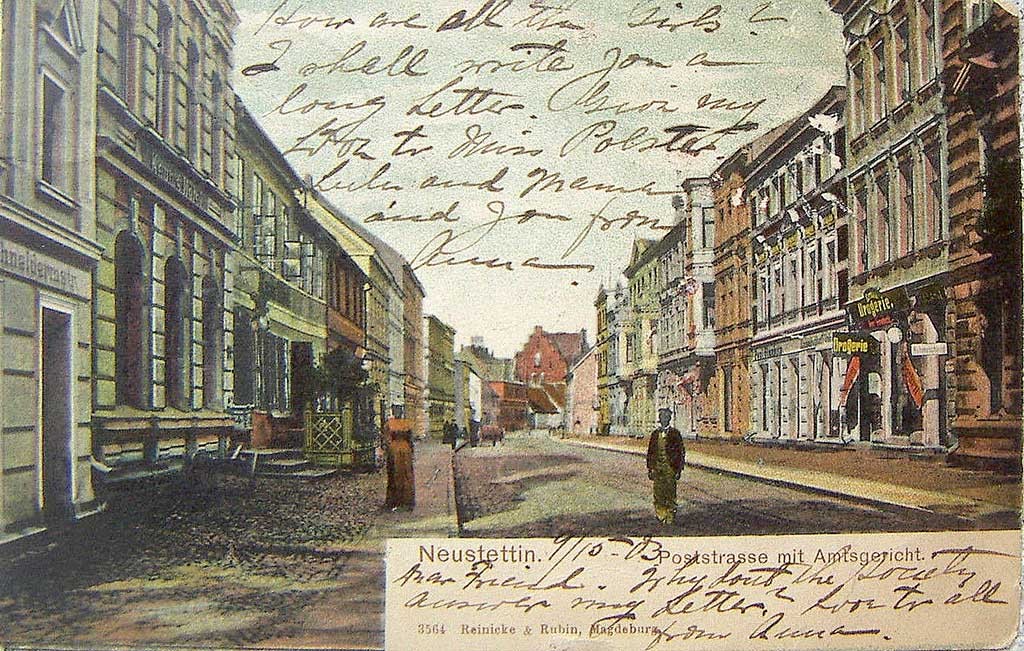 How are all the Girls?
I shall write you a
long letter. Given my
love to Miss Polster.
Lulu and Mama
and you from
Anna
Drogerie
Drogerie
Neustettin. 9/10-03 Poststrasse mit Amtsgericht.
Dear Friend. Why don't the Society
answer my letter? Love to all
3564 Reinicke & Rubin, Magdeburg from Anna.